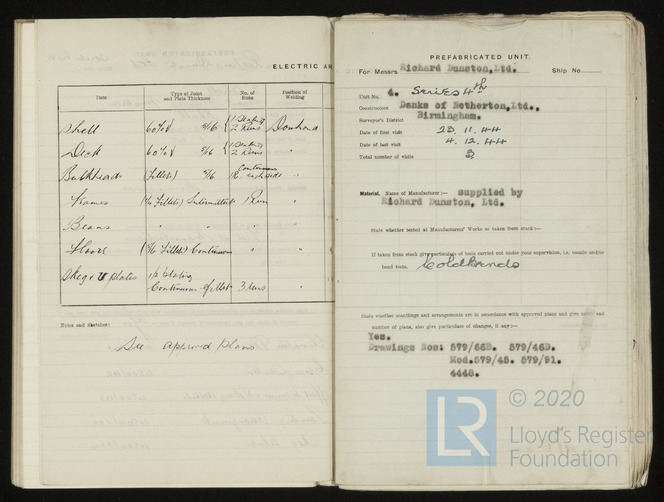 ELECTRIC AR
Item Type of Joint and Plate Thickness No. of Runs Position of Welding
Shell 60° V 5/16 { 1 Sealing 2 Runs Downhand
Deck 60° V 5/16 { 1 Sealing 2 Runs "
Bulkheads (Fillets) 5/16 Continuous each side "
Frames Fillets) Intermittent 1 Run "
Beams " " "
Floors Fillets) Continuous " "
Skeg & plates Continuous fillet 3 runs "
Notes and Sketches:
See approved plans
PREFABRICATED UNIT.
For Messrs Richard Dunston, Ltd. Ship No.
Unit No. 4. Series 4th
Constructors Danks of Netherton, Ltd.,
Surveyor's District Birmingham.
Date of first visit 23. 11. 44
Date of last visit 4. 12. 44
Total number of visits 3
Material. Name of Manufacturer :— supplied by
Richard Dunston, Ltd.
State whether tested at Manufacturers' Works or taken from stock :—
If taken from stock give particulars of tests carried out under your supervision, i.e. tensile and/or
bend tests. Cold Bends
State whether scantlings and arrangements are in accordance with approved plans and give names and
number of plans, also give particulars of changes, if any :—
Yes.
Drawings Nos: 579/66B. 579/46D.
Mod.579/45. 579/91.
4448.
LR © 2020
Lloyd's Register
Foundation